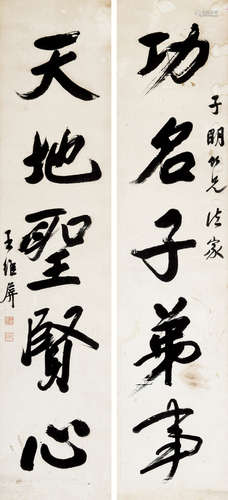 子明仁兄法家
功名子弟事
天地聖賢心
王維屏